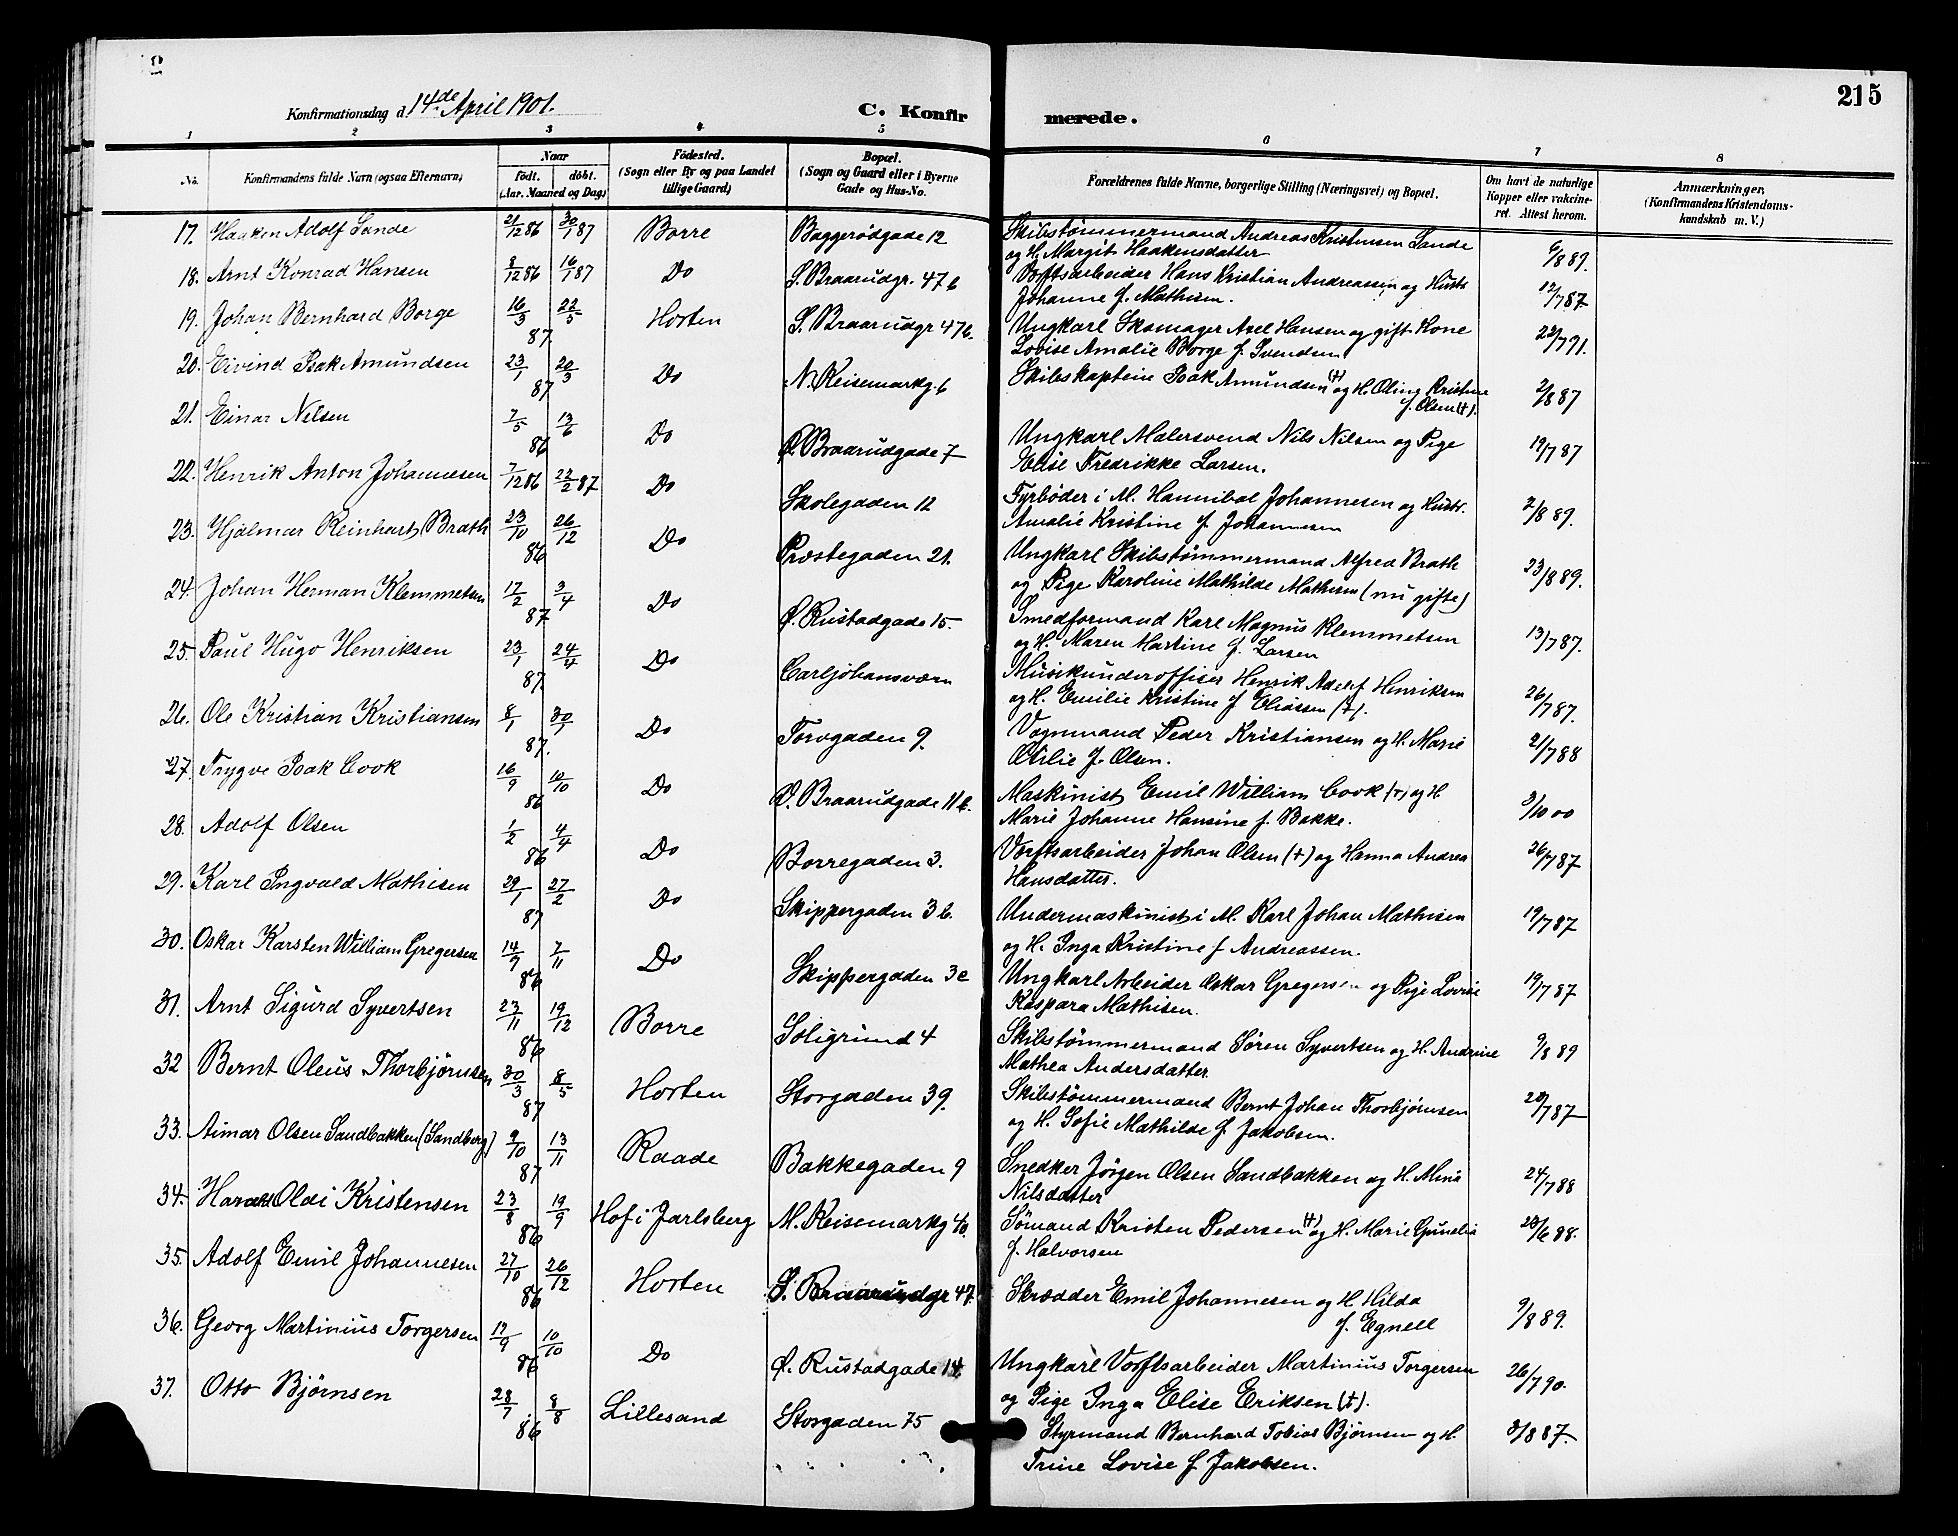 215
Konfirmationsdag d. 14de April 1901.
C. Konfirmerede.
1 2 3 4 5 6 7 8
No. Konfirmandens fulde Navn (ogsaa Efternavn) Naar født. døbt. (Aar. Maaned og Dag) Fødested. (Sogn eller By og paa Landet tillige Gaard) Bopæl. (Sogn og Gaard eller i Byerne Gade og Hus-No. Forældrenes fulde Navne, borgerlige Stilling (Næringsvei) og Bopæl. Om havt de naturlige Kopper eller vakcineret. Attest herom. Anmærkninger. (Konfirmandens Kristendomskundskab m. V.)
17. Haaken Adolf Sande 21/12 86 30/1 87 Borre Baggerødgade 12 Skibstømmermand Andreas Kristensen Sande
og H. Margit Haakensdatter 6/8 89.
18. Arnt Konrad Hansen 8/12 86 16/1 87 Do S. Braarudgr. 47 b Verftsarbeider Hans Kristian Andreassen og Hustr.
Johanne f. Mathisen. 12/7 87
19. Johan Bernhard Borge 16/3 22/5 87 Horten S. Braarudgr 47 b. Ungkarl Skomager Axel Hansen og gift Kone
Lovise Amalie Borge f. Svendsen 22/7 91.
20. Eivind Isak Amundsen 23/1 20/3 87 Do N. Keisemarkg. 6 Skibskaptein Isak Amundsen (+) og H. Oline Kristine
f. Olsen (+). 2/8 87
21. Einar Nelsen 7/5 13/6 86 Do Ø. Braarudgade 7 Ungkarl Malersvend Nils Nilsen og Pige
Elise Fredrikke Larsen. 19/7 87
22. Henrik Anton Johannesen 7/12 86 22/2 87 Do Skolegaden 12 Fyrbøder i M. Hannibal Johannesen og Hustr.
Amalie Kristine f. Johannesen 2/8 89.
23. Hjalmar Reinhart Brath 23/10 26/12 86 Do Prestegaden 21. Ungkarl Skibstømmermand Alfred Brath
og Pige Karoline Mathilde Mathisen (nu gifte) 23/8 89.
24. Johan Herman Klemmetsen 17/2 3/4 87 Do Ø. Rustadgade 15. Smedformand Karl Magnus Klemmetsen
og H. Maren Martine f. Larsen 13/7 87.
25. Paul Hugo Henriksen 23/1 24/4 87. Do Carljohansværn Musikunderofficer Henrik Adolf Henriksen
og H. Emilie Kristine f. Eliassen (+). 26/7 87.
26. Ole Kristian Kristiansen 8/1 30/1 87. Do Torvgaden 9. Vognmand Peder Kristiansen og H. Marie
Otilie f. Olsen. 2/7 88
27. Trygve Isak Cook 16/9 10/10 86 Do Ø. Braarudgade 11 b. Maskinist Emil William Cook (+) og H.
Marie Johanne Hansine f. Bakke. 3/10 00
28. Adolf Olsen 1/2 4/4 86 Do Borregaden 3. Verftsarbeider Johan Olsen (+) og Hanna Andrea
Hansdatter. 26/7 87
29. Karl Ingvald Mathisen 29/1 27/2 87 Do Skippergaden 3 b. Undermaskinist i M. Karl Johan Mathisen
og H. Inga Kristine f. Andreassen. 19/7 87
30. Oskar Karsten William Gregersen 14/9 7/11 86 Do Skippergaden 3 c Ungkarl Arbeider Oskar Gregersen og Pige Lovise
Kaspara Mathisen. 19/7 87
31. Arnt Sigurd Syvertsen 23/11 19/12 86 Borre Soligrund 4 Skibstømmermand Søren Syvertsen og H. Andrine
Mathea Andersdatter 9/8 89
32 Bernt Oleus Thorbjørnsen 30/3 8/5 87 Horten Storgaden 39. Skibstømmermand Bernt Johan Thorbjørnsen
og H. Sofie Mathilde f. Jakobsen. 20/7 87
33. Aimar Olsen Sandbakken (Sandberg) 9/10 13/11 87 Raade Bakkegaden 9 Snedker Jørgen Olsen Sandbakken og H. Mina
Nilsdatter 24/7 88
34. Harald Oldi Kristensen 23/8 19/9 86 Hof i Jarlsberg M. Keisemarkg 40. Sømand Kristen Pedersen (+) og H. Marie Gunelia
f. Halvorsen 23/6 88.
35. Adolf Emil Johannesen 27/10 26/12 86 Horten S. Braarudgr 47. Skrædder Emil Johannesen og H. Hilda
f. Egnell 9/8 89.
36. Georg Martinius Torgersen 17/9 10/10 86 Do Ø. Rustadgade 14 Ungkarl Verftsarbeider Martinius Torgersen
og Pige Inga Elise Eriksen (+). 26/7 90.
37. Otto Bjørnsen 28/7 8/8 86 Lillesand Storgaden 75 Styrmand Bernhard Tobias Bjørnsen og H.
Trine Lovise f. Jakobsen. 3/8 87.